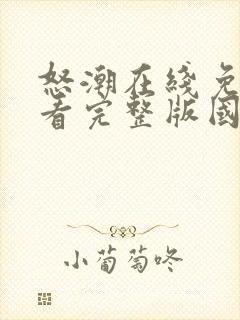 怒潮在线免
看完整版国
小葡萄咚